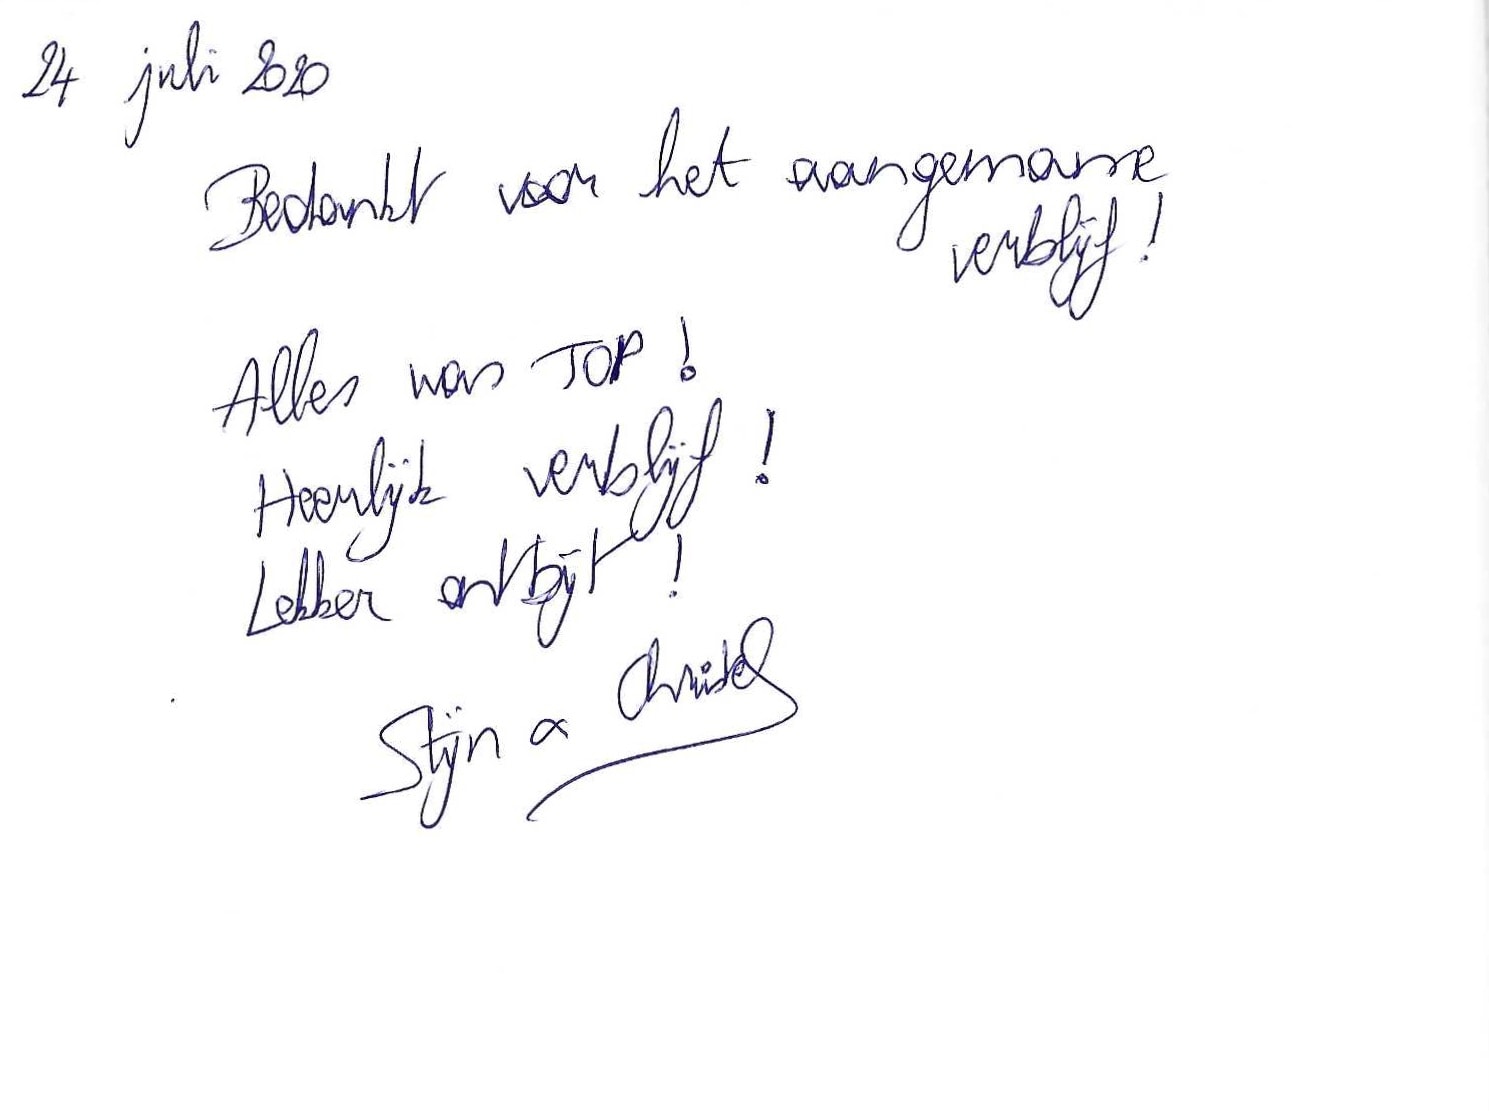 24 juli 2020
Bedankt voor het aangename
verblijf!
Alles was TOP!
Heerlijk verblijf!
Lekker ontbijt!
Stijn & Christel